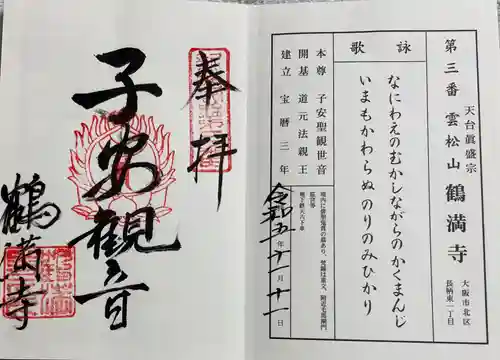 第三番 天台眞盛宗 雲松山 鶴満寺 大阪市北区 長柄東一丁目
詠歌
なにわえのむかしながらのかくまんじ
いまもかわらぬのりのみひかり
本尊 子安聖観世音
開基 道元法親王
建立 宝暦三年
令和五年十一月十一日
奉拝
子安観音
鶴満寺